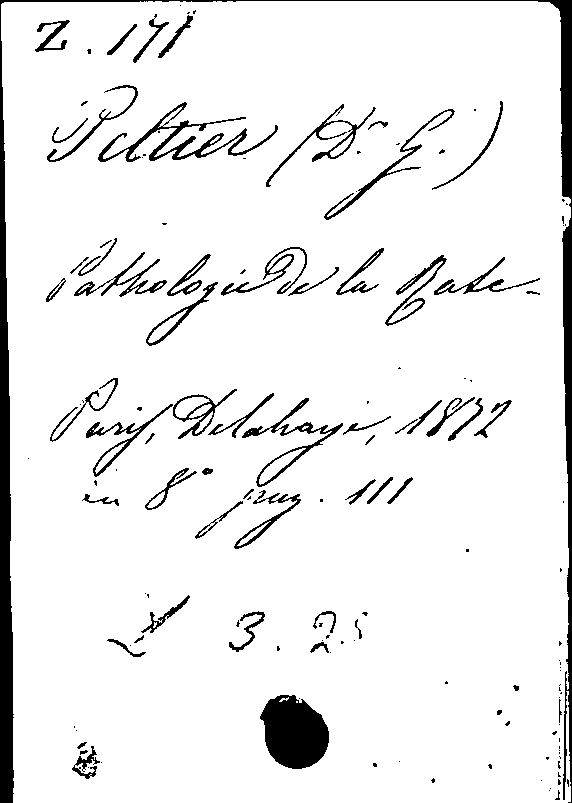 Z. 171
Peltier (Dr. G.)
Pathologie de la Rate-
Paris, Delahaye, 1872
in 8° pag. 111
£ 3. 25